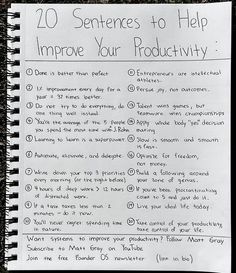 20 Sentences to Help
Improve Your Productivity :
① Done is better than perfect
② 1% improvement every day for a
year = 37 times better.
③ Do not try to do everything, do
one thing well instead.
④ You're the average of the 5 people
you spend the most time with J. Rohn
⑤ Learning to learn is a superpower.
⑥ Automate, eliminate, and delegate.
⑦ Write down your top 3 priorities
every morning (or the night before)
⑧ 4 hours of deep work > 12 hours
of distracted work.
⑨ If a task takes less than 2
minutes - do it now.
⑩ You'll never regret spending time
in nature.
⑪ Entrepreneurs are intellectual
athletes.
⑫ Pursue joy, not outcomes.
⑬ Talent wins games, but
teamwork wins championships
⑭ Apply whole body "yes" decision
making.
⑮ Slow is smooth and smooth
is fast.
⑯ Optimize for freedom,
not money.
⑰ Build a following around
your zone of genius.
⑱ If you've been procrastinating
count to 5 and just do it.
⑲ Live your ideal life today.
⑳ Take control of your productivity
take control of your life.
Want systems to improve your productivity? Follow Matt Gray
Subscribe to Matt Gray on YouTube
Join the free Founder OS newsletter (link in bio)